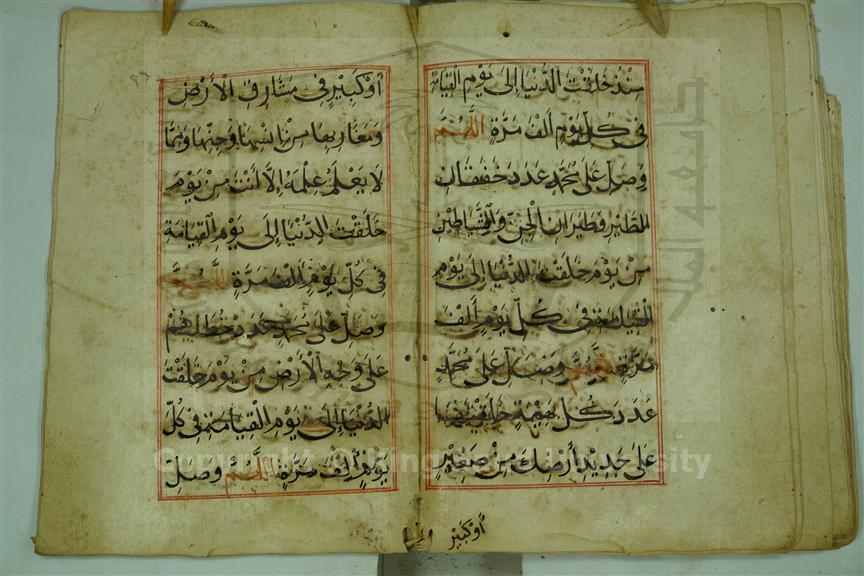 مِنْذُ خَلَقْتَ الدُّنْيَا إِلَى يَوْمِ الْقِيَامَةِ
فِي كُلِّ يَوْمٍ أَلْفَ مَرَّةٍ اللَّهُمَّ
وَصَلِّ عَلَى مُحَمَّدٍ عَدَدَ خَفَقَانِ
الطَّيْرِ وَطَيَرَانِ الْجِنِّ وَالشَّيَاطِيْنِ
مِنْ يَوْمِ خَلَقْتَ الدُّنْيَا إِلَى يَوْمِ
الْقِيَامَةِ فِي كُلِّ يَوْمٍ أَلْفَ
مَرَّةٍ اللَّهُمَّ وَصَلِّ عَلَى مُحَمَّدٍ
عَدَدَ كُلِّ بَهِيْمَةٍ خَلَقْتَهَا
عَلَى جَدِيْدِ أَرْضِكَ مِنْ صَغِيْرٍ
أَوْ كَبِيْرٍ
أَوْ كَبِيْرٍ فِي مَشَارِقِ الْأَرْضِ
وَمَغَارِبِهَا مِنْ إِنْسِهَا وَجِنِّهَا وَمِمَّا
لَا يَعْلَمُ عِلْمَهُ إِلَّا أَنْتَ مِنْ يَوْمَ
خَلَقْتَ الدُّنْيَا إِلَى يَوْمِ الْقِيَامَةِ
فِي كُلِّ يَوْمٍ أَلْفَ مَرَّةٍ اللَّهُمَّ
وَصَلِّ عَلَى مُحَمَّدٍ عَدَدَ خُطَاهُمْ
عَلَى وَجْهِ الْأَرْضِ مِنْ يَوْمَ خَلَقْتَ
الدُّنْيَا إِلَى يَوْمِ الْقِيَامَةِ فِي كُلِّ
يَوْمٍ أَلْفَ مَرَّةٍ اللَّهُمَّ وَصَلِّ
Copyright © King Saud University